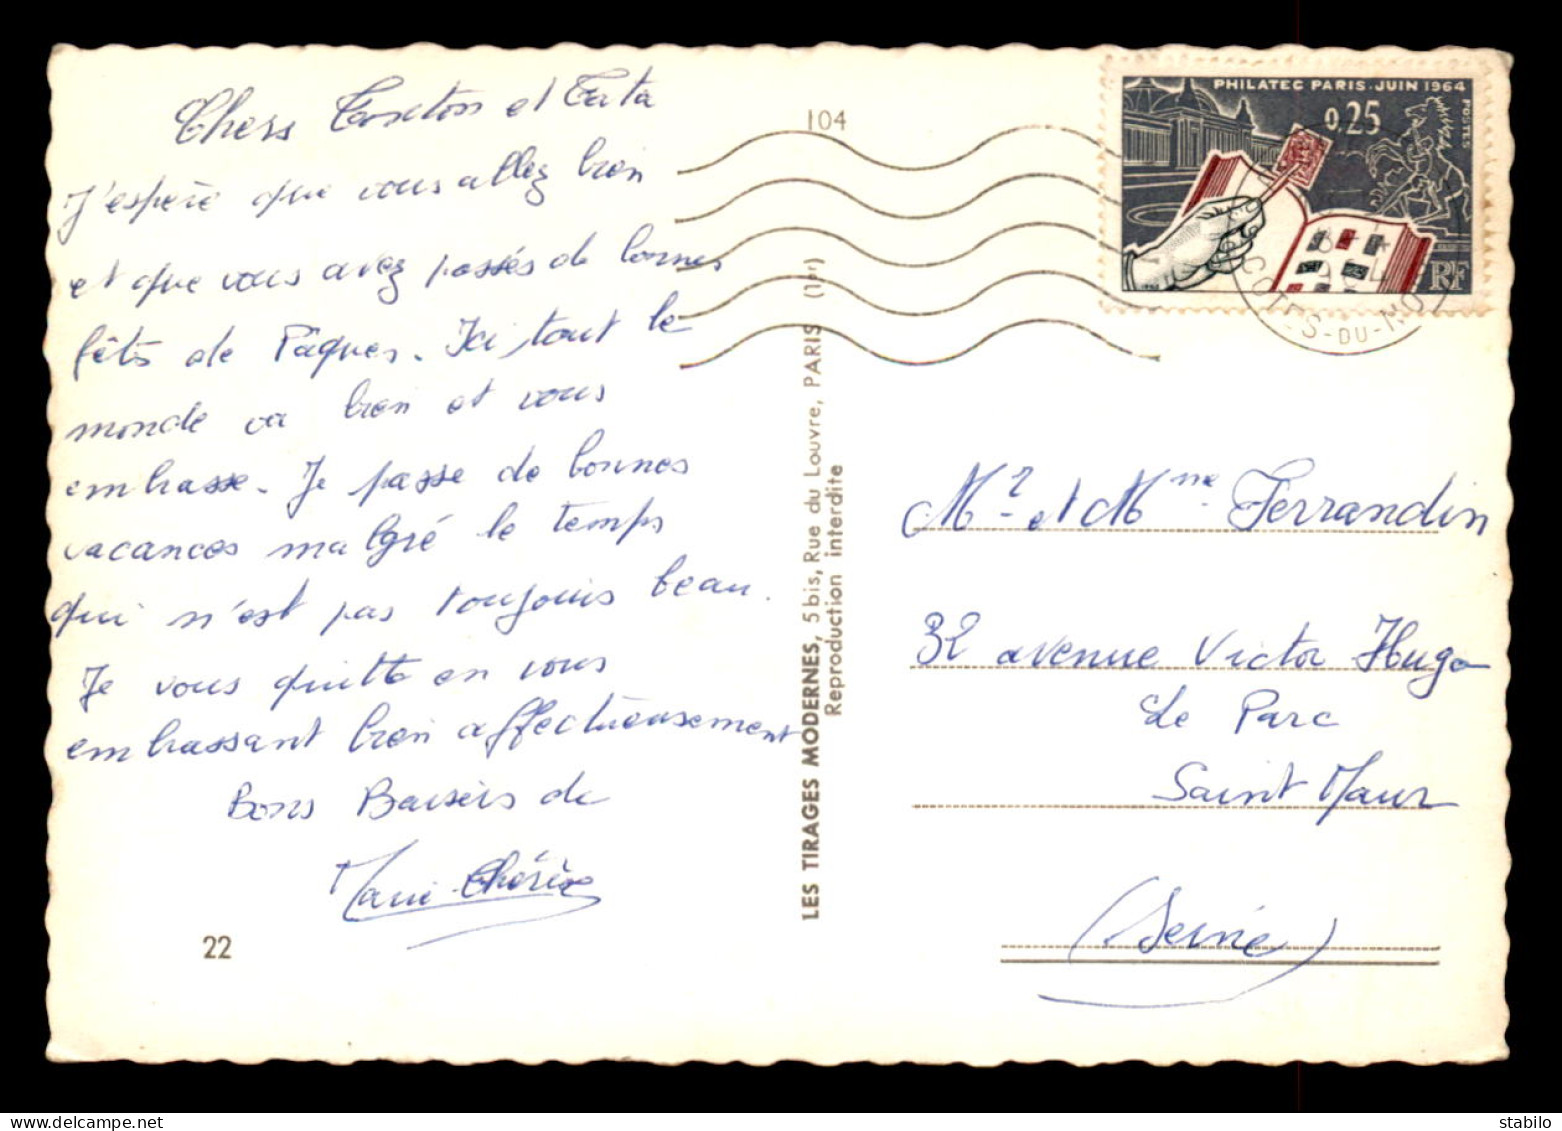 Chers Tonton et Tata
J'espère que vous allez bien
et que vous avez passés de bonnes
fêts de Pâques. Ici tout le
monde va bien et vous
embrasse. Je passe de bonnes
vacances malgré le temps
qui n'est pas toujouis beau.
Je vous quitte en vous
embrassant bien affectueusement
Bons Baisers de
Marie-Thérèse
22
104
LES TIRAGES MODERNES, 5 bis, Rue du Louvre, PARIS (1er)
Reproduction interdite
PHILATEC PARIS.JUIN 1964
0,25
POSTES
RF
COTES-DU-NO
Mr et Mme Ferrandin
32 avenue Victor Hugo
Le Parc
Saint Maur
(Seine)
delcampe.net
tribilo